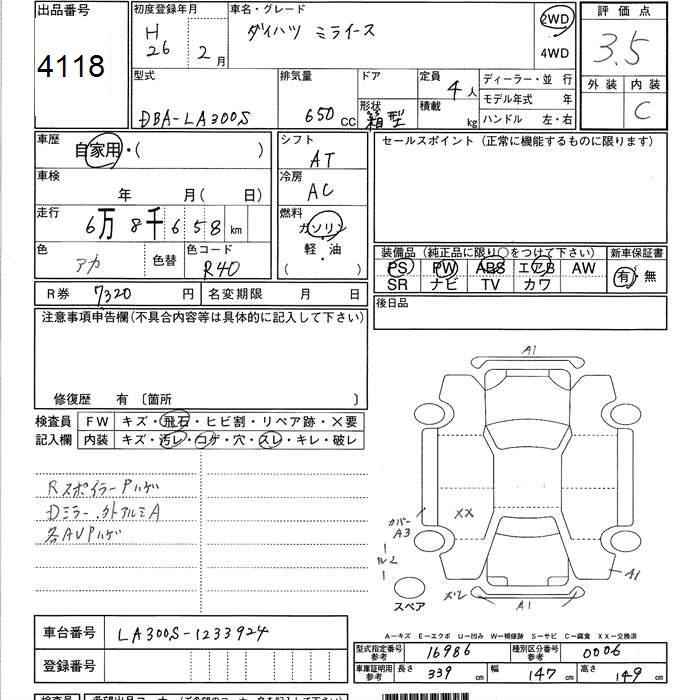 出品番号
4118
初度登録年月
H 26 2 月
車名・グレード
ダイハツ ミライース
2WD
4WD
評価点
3.5
外装 内装
C
型式
DBA-LA300S
排気量
650 cc
ドア
形状
箱型
定員
4 人
積載
kg
ディーラー・並 行
モデル年式 年
ハンドル 左・右
車歴
自家用・( )
車検
年 月( 日)
走行
6万8千658 km
色
アカ
色替
色コード
R40
シフト
AT
冷房
AC
燃料
ガソリン
・
軽・油
( )
セールスポイント(正常に機能するものに限ります)
装備品(純正品に限り○をつけて下さい)
PS PW ABS エアB AW
SR ナビ TV カワ
新車保証書
有・無
後日品
R券 7320 円
名変期限 月 日
注意事項申告欄(不具合内容等は具体的に記入して下さい)
修復歴 有〔箇所 〕
検査員
記入欄
FW キズ・飛石・ヒビ割・リペア跡・×要
内装 キズ・汚レ・コゲ・穴・スレ・キレ・破レ
RスポイラーPハゲ
Dミラー.外アルミA
各AVPハゲ
A1
XX
カバー
A3
ズレ
A1
A1
スペア
A-キズ E-エクボ U-凹み W-補修跡 S-サビ C-腐食 XX-交換済
車台番号
LA300S-1233924
登録番号
型式指定番号
参考
16986
種別区分番号
参考
0006
車庫証明用
参考
長さ 339 cm
幅 147 cm
高さ 149 cm